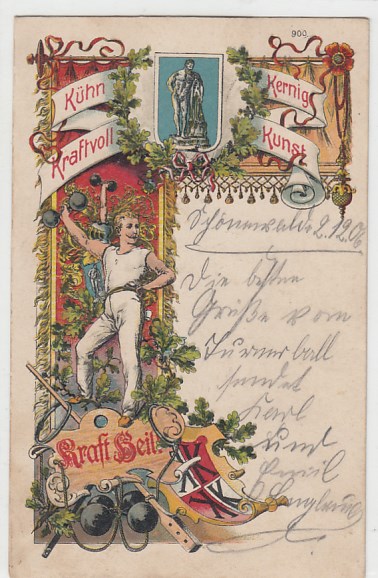 900.
Kühn
Kernig
Kraftvoll
Kunst
Schönewalde 2.12.06
Die besten
Grüße vom
Turnerball
sendet
Karl
und
Emil
Kraft Heil!